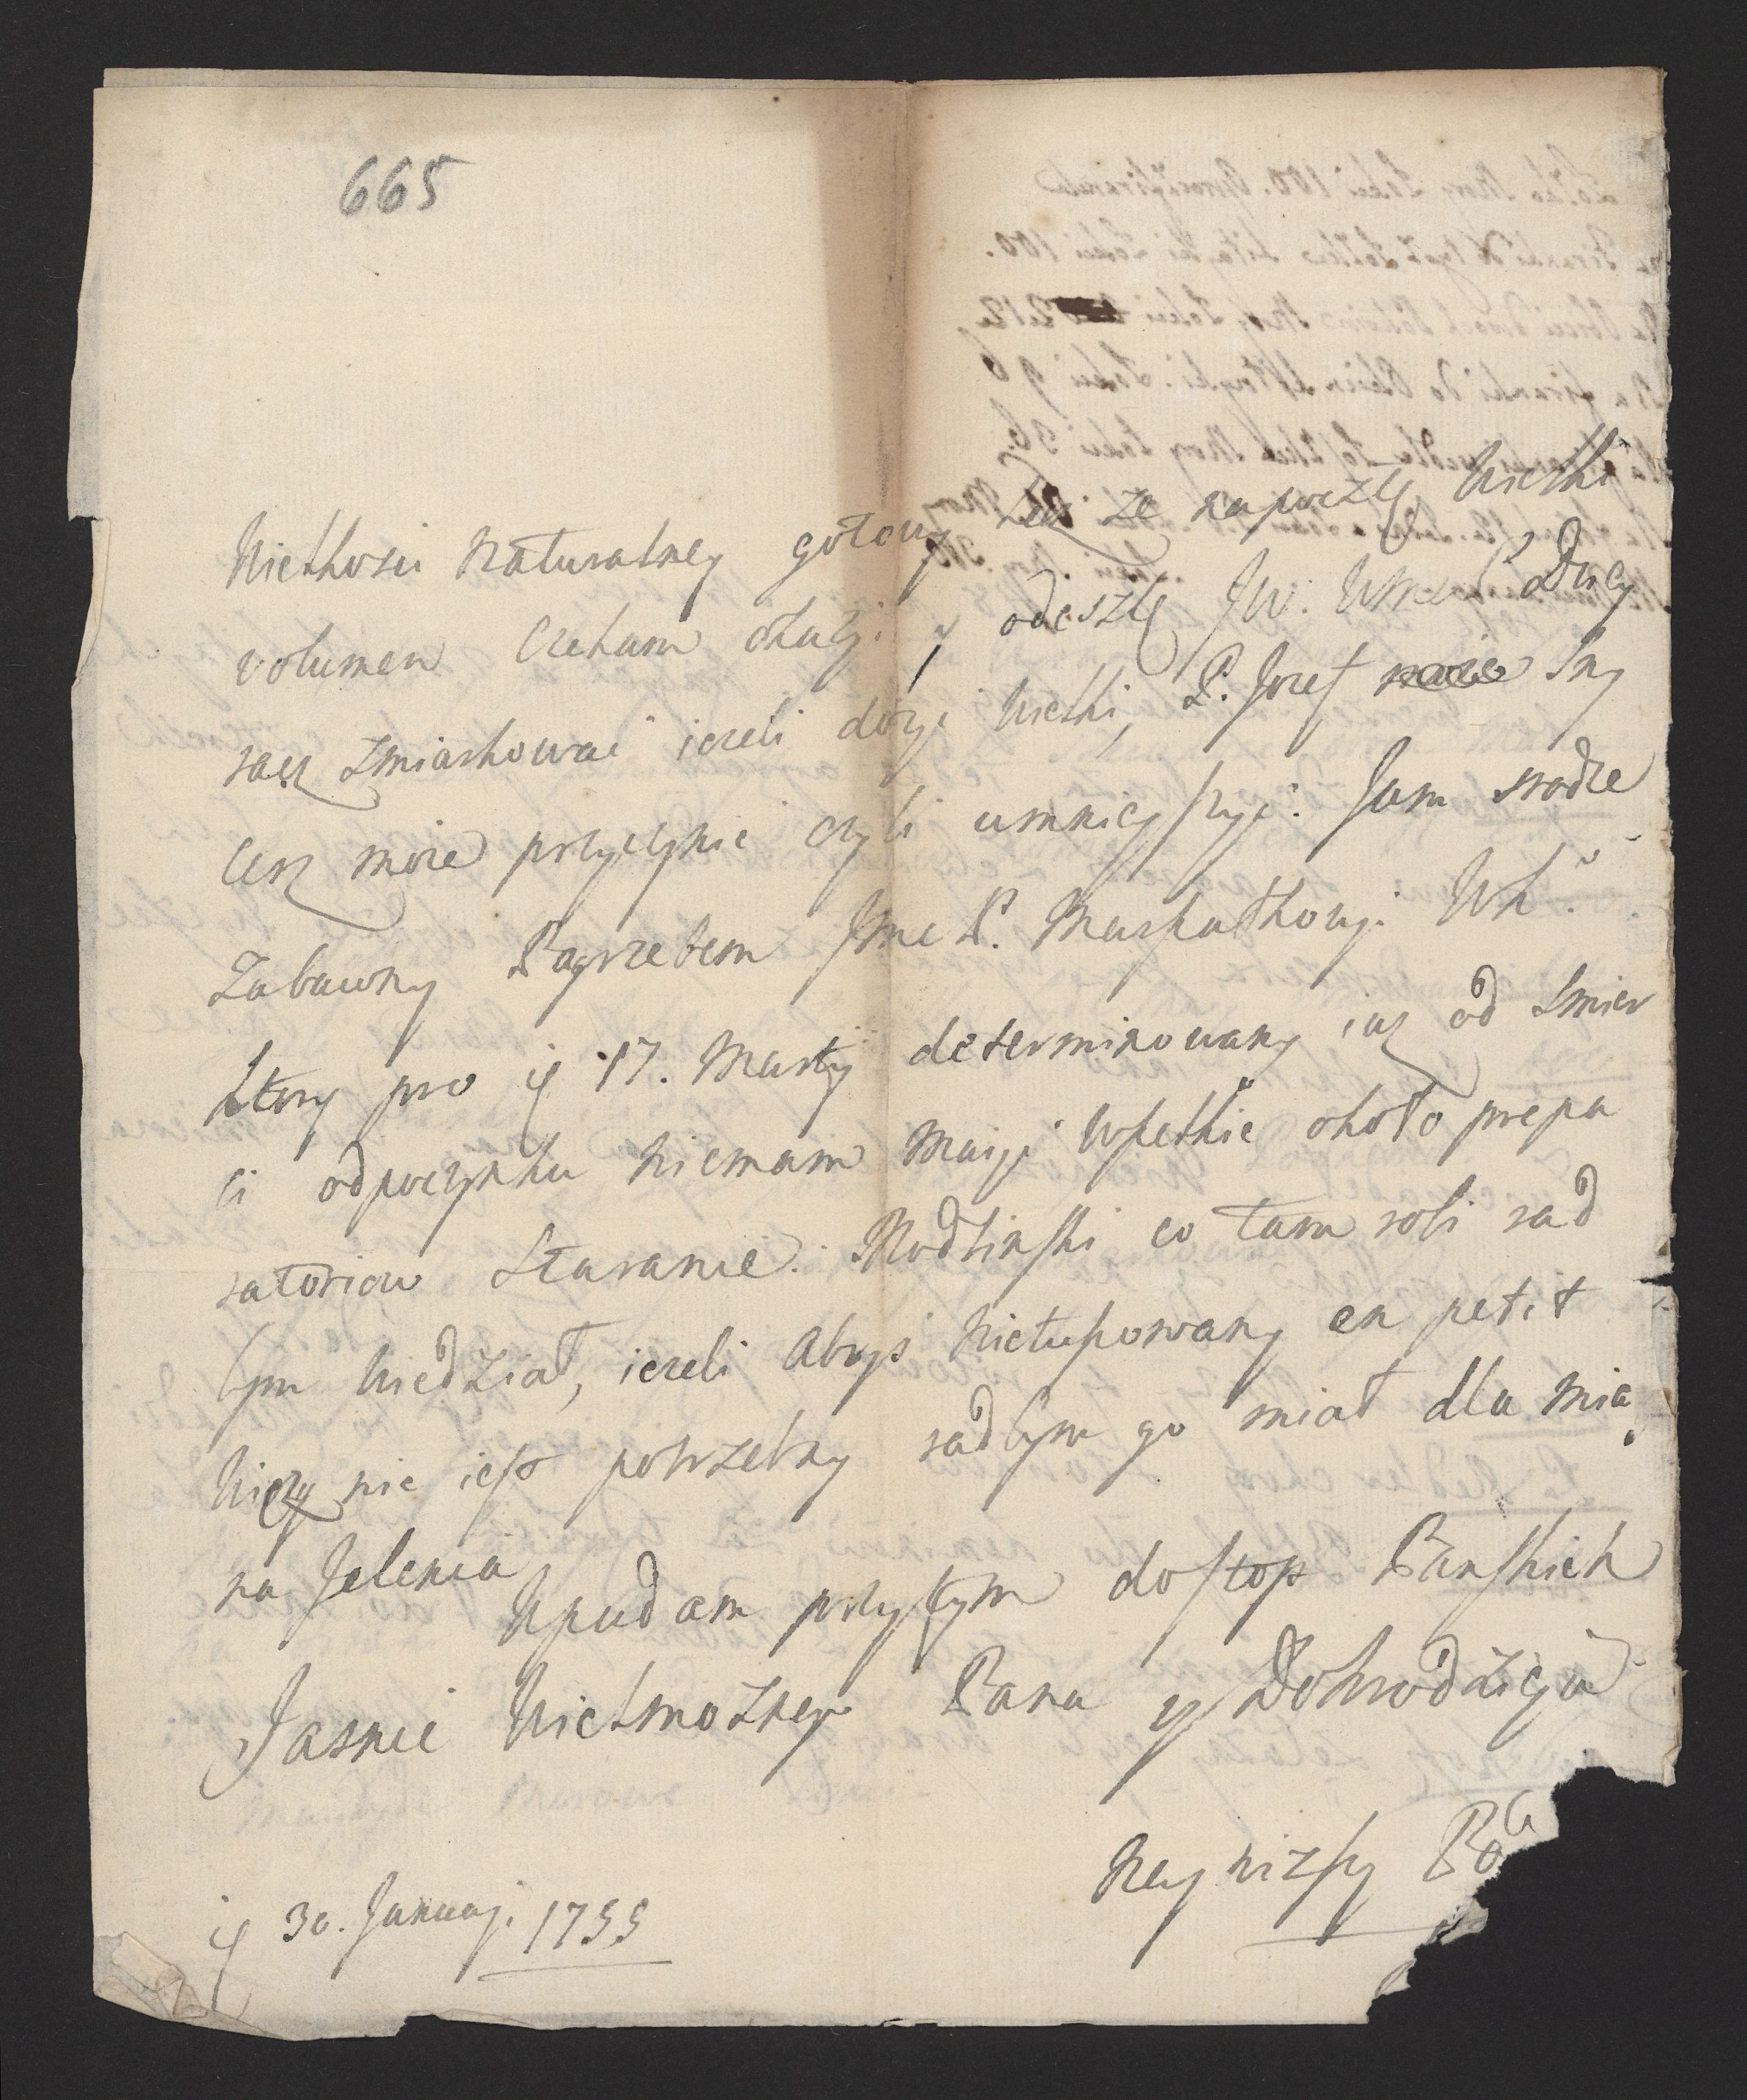 665
Wielkosci Naturalney gotowy Lecz ze napoczty Wielki
volumen Czekam okazji y odeszlę JW. WmeuP Dncy
racz zmiarkowac iezeli dozyc Wielki, P. Jozef Sny
cerz moze przyczynic czyli umnieyszyc. Jam srodze
Zabawny Pogrzebem Jme P. Wk
ktory pro 17. Marty determinowany iuz od Smier
ci odpoczynku niemam maiąc Wszelkie około prepa
ratoriow Staranie. Modlinski co tam robi rad
bym Wiedział, iezeli Abrys en petit
nie iest potrzebny radbym go miał dla mia
na Jelenia
Upadam przytym dostop Panskich
Jasnie Wielmoznego Pana y Dobrodzieja
Nayniższy
30. January. 1755